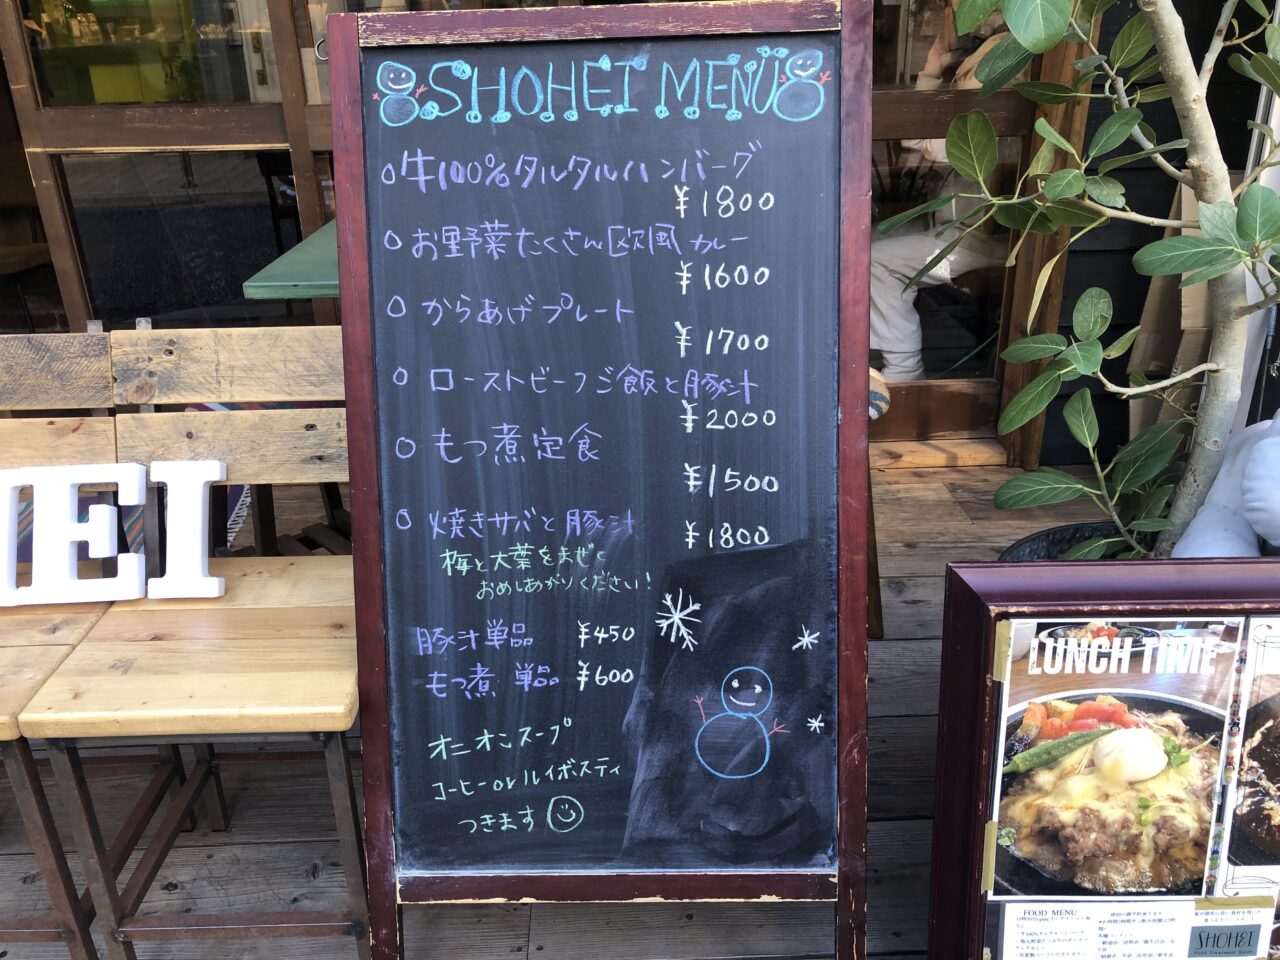 SHOHEI MENU
牛100%タルタルハンバーグ
¥1800
お野菜たくさん欧風カレー
¥1600
からあげプレート
¥1700
ローストビーフご飯と豚汁
¥2000
もつ煮定食
¥1500
焼きサバと豚汁
¥1800
梅と大葉をまぜて
おめしあがりください!
豚汁単品 ¥450
もつ煮 単品 ¥600
オニオンスープ
コーヒー or ルイボスティ
つきます
EI
LUNCH TIME
FOOD MENU
SHOHEI